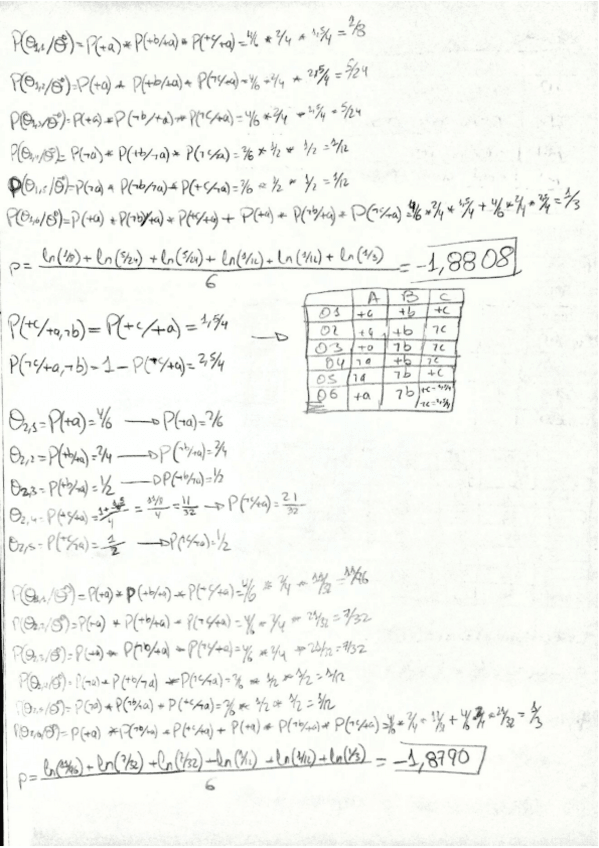 P(θ1,1/θ°)=P(+a)*P(+b/+a)*P(+c/+a)=4/6 * 2/4 * 1,5/4 = 1/8
P(θ1,2/θ°)=P(+a) * P(+b/+a) * P(¬c/+a)=4/6 * 2/4 * 2,5/4 = 5/24
P(θ1,3/θ°)=P(+a) * P(¬b/+a) * P(¬c/+a)=4/6 * 2/4 * 2,5/4 = 5/24
P(θ1,4/θ°)=P(¬a) * P(+b/¬a) * P(¬c/¬a)=2/6 * 1/2 * 1/2 = 1/12
P(θ1,5/θ°)=P(¬a) * P(¬b/¬a) * P(+c/¬a)=2/6 * 1/2 * 1/2 = 1/12
P(θ1,6/θ°)=P(+a) * P(¬b/+a) * P(+c/+a) + P(+a) * P(¬b/+a) * P(¬c/+a)=4/6 * 2/4 * 1,5/4 + 4/6 * 2/4 * 2,5/4 = 1/3
P= ln(1/8) + ln(5/24) + ln(5/24) + ln(1/12) + ln(1/12) + ln(1/3) = -1,8808
6
P(+c/+a,¬b)=P(+c/+a)=1,5/4 →
P(¬c/+a,¬b)=1-P(+c/+a)=2,5/4
A B C
01 +a +b +c
02 +a +b ¬c
03 +a ¬b ¬c
04 ¬a +b ¬c
05 ¬a ¬b +c
06 +a ¬b +c=1,5/4
¬c=2,5/4
θ2,1=P(+a)=4/6 → P(¬a)=2/6
θ2,2=P(+b/+a)=2/4 → P(¬b/+a)=2/4
θ2,3=P(+b/¬a)=1/2 → P(¬b/¬a)=1/2
θ2,4=P(+c/+a)= = 11/8 / 4 = 11/32 → P(¬c/+a)=21/32
θ2,5=P(+c/¬a)=1/2 → P(¬c/¬a)=1/2
=P(+a) * P(+b/+a) * P(+c/+a)=4/6 * 2/4 * 11/32 = 11/96
=P(+a) * P(+b/+a) * P(¬c/+a)=4/6 * 2/4 * 21/32 = 7/32
=P(+a) * P(¬b/+a) * P(¬c/+a)=4/6 * 2/4 * 21/32 = 7/32
=P(¬a) * P(+b/¬a) * P(¬c/¬a)=2/6 * 1/2 * 1/2 = 1/12
=P(¬a) * P(¬b/¬a) * P(+c/¬a)=2/6 * 1/2 * 1/2 = 1/12
=P(+a) * P(¬b/+a) * P(+c/+a) + P(+a) * P(¬b/+a) * P(¬c/+a)=4/6 * 2/4 * 11/32 + 4/6 * 2/4 * 21/32 = 1/3
P= ln(11/96) + ln(7/32) + ln(7/32) + ln(1/12) + ln(1/12) + ln(1/3) = -1,8790
6